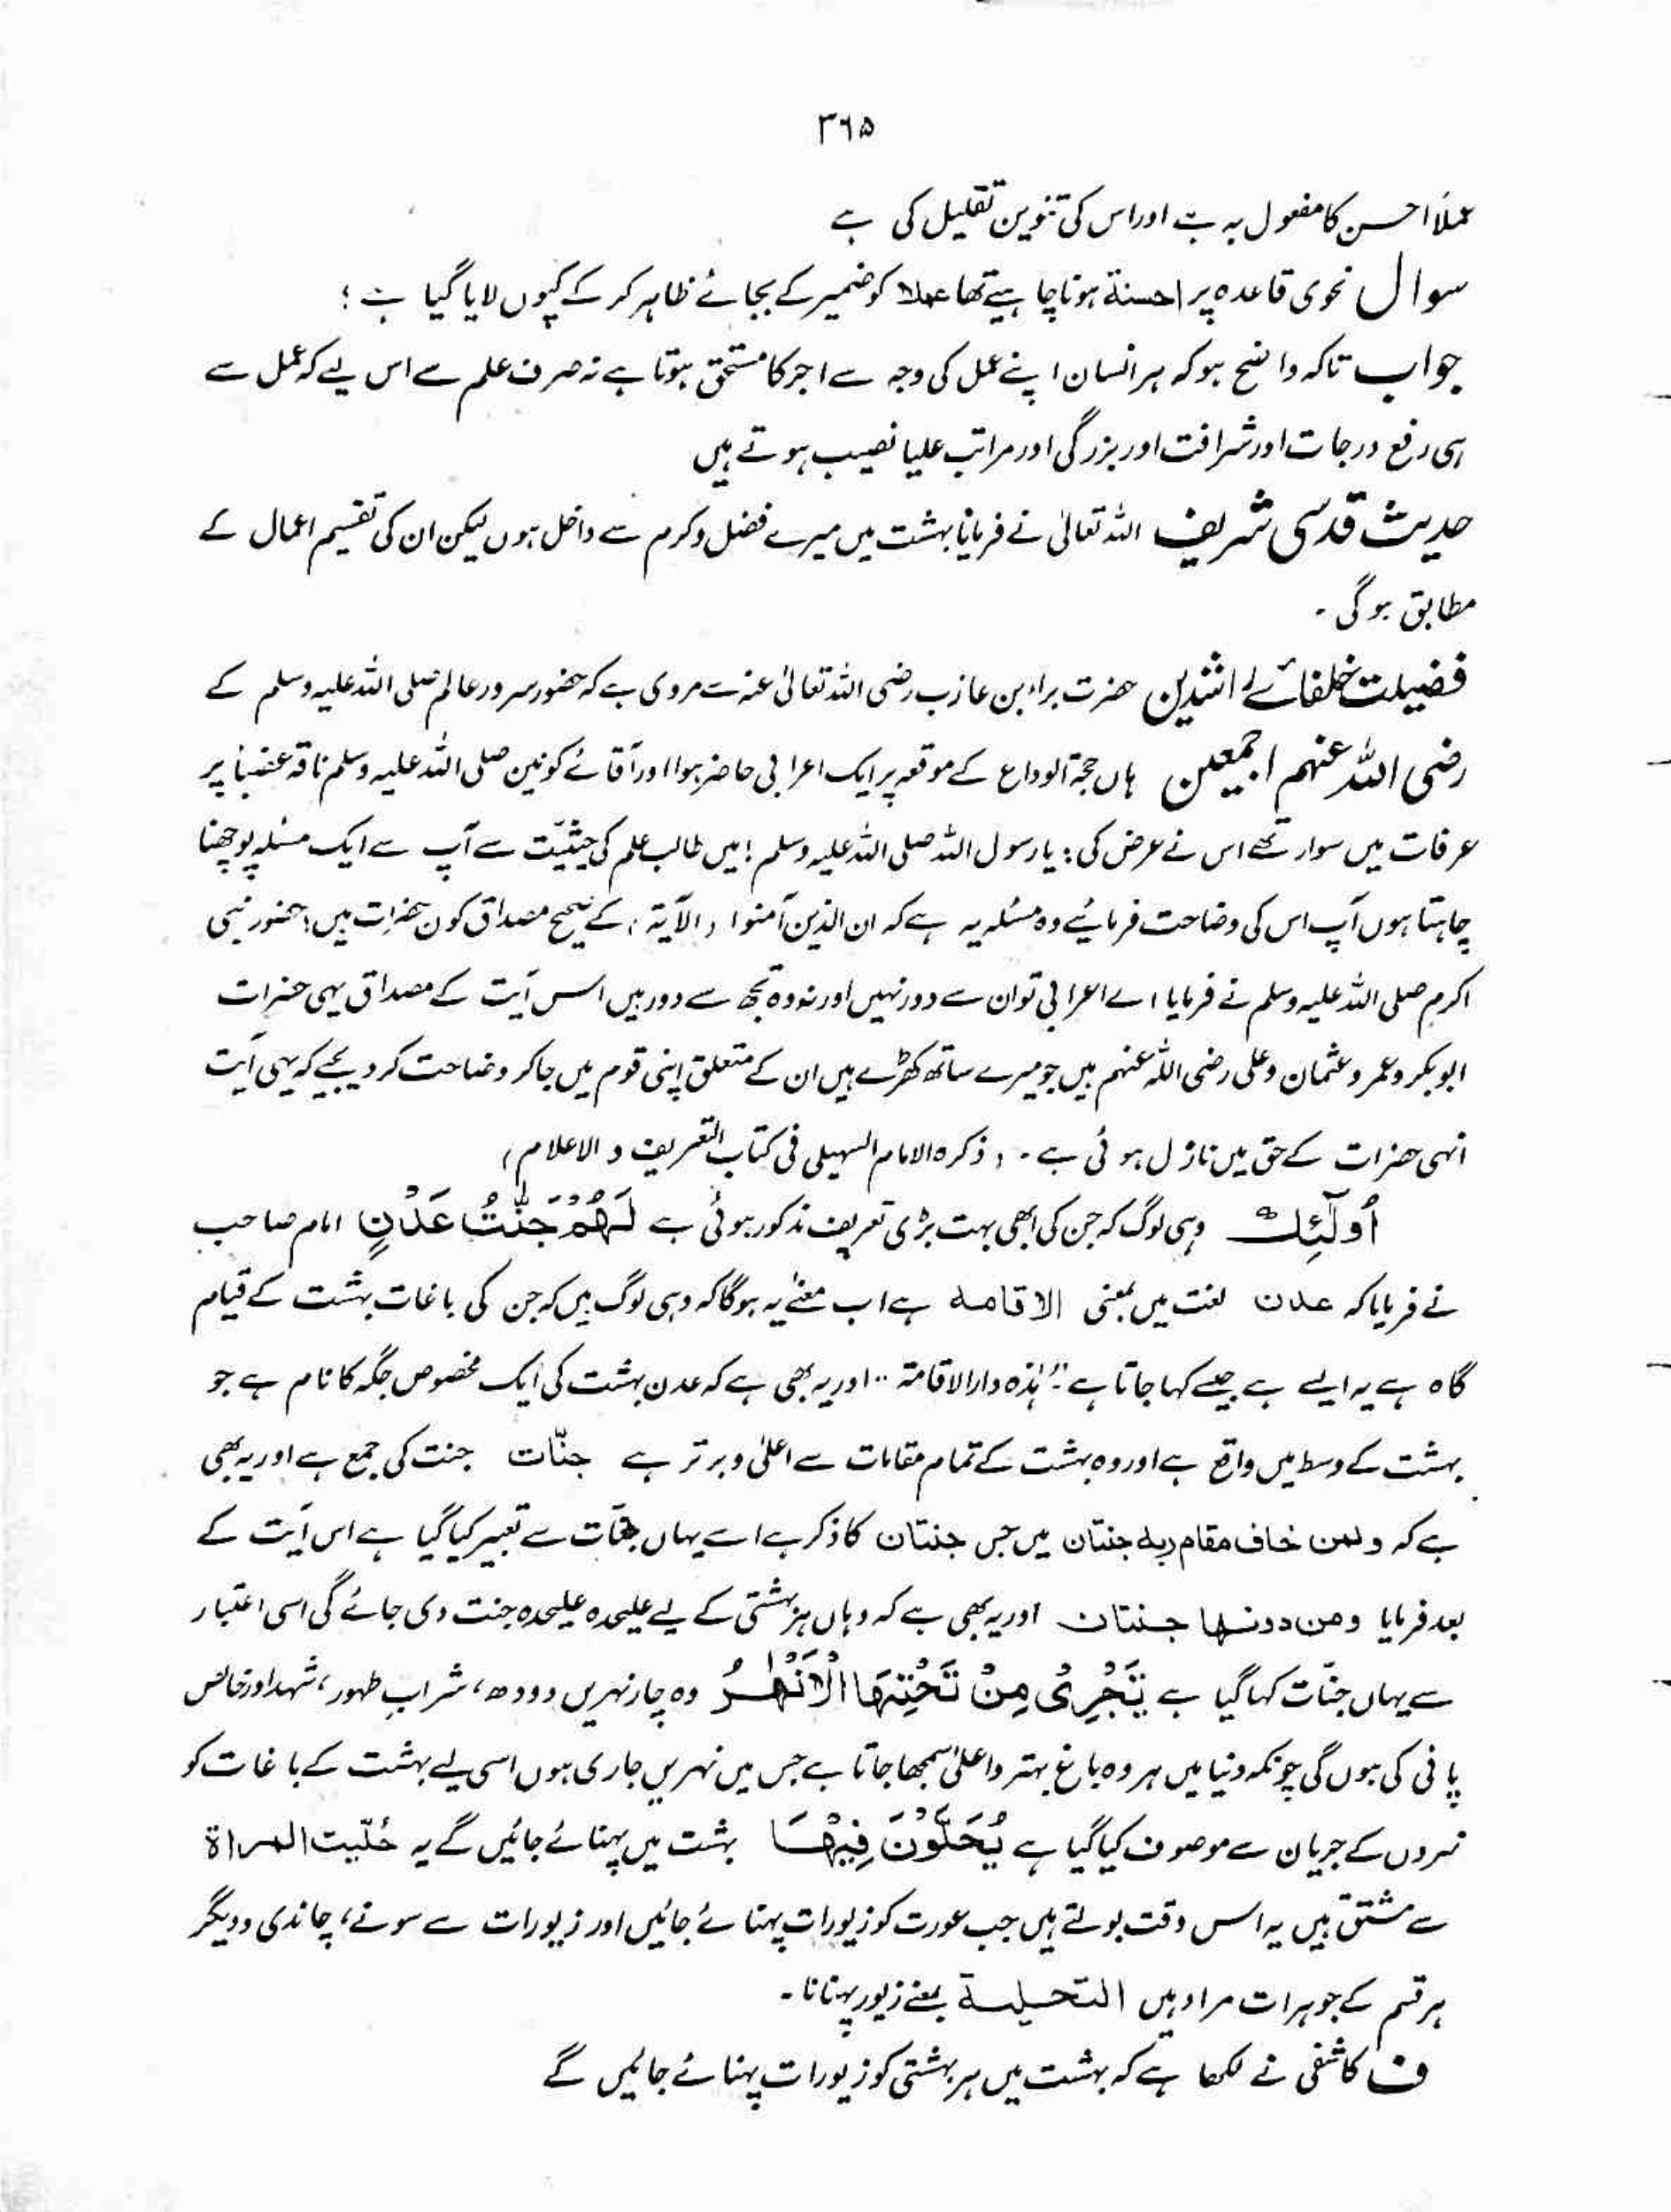 ۳۶۵
عملاً احسن کا مفعول بہ ہے اور اس کی تنوین تقلیل کی ہے
سوال نحوی قاعدہ پر احسنۃ ہونا چاہیے تھا عملا کو ضمیر کے بجائے ظاہر کر کے کیوں لایا گیا ہے ؛
جواب تاکہ واضح ہو کہ ہر انسان اپنے عمل کی وجہ سے اجر کا مستحق ہوتا ہے نہ صرف علم سے اس لیے کہ عمل سے
ہی رفع درجات اور شرافت اور بزرگی اور مراتب علیا نصیب ہوتے ہیں
حدیث قدسی شریف اللہ تعالیٰ نے فرمایا بہشت میں میرے فضل و کرم سے داخل ہوں لیکن ان کی تقسیم اعمال کے
مطابق ہو گی ۔
فضیلت خلفائے راشدین حضرت براء بن عازب رضی اللہ تعالیٰ عنہ سے مروی ہے کہ حضور سرور عالم صلی اللہ علیہ وسلم کے
رضی اللہ عنہم اجمعین ہاں حجۃ الوداع کے موقعہ پر ایک اعرابی حاضر ہوا اور آقائے کونین صلی اللہ علیہ وسلم ناقہ عضبا پر
عرفات میں سوار تھے اس نے عرض کی : یا رسول اللہ صلی اللہ علیہ وسلم ! میں طالب علم کی حیثیت سے آپ سے ایک مسئلہ پوچھنا
چاہتا ہوں آپ اس کی وضاحت فرمائیے وہ مسئلہ یہ ہے کہ ان الذین آمنوا (الآیۃ) کے صحیح مصداق کون حضرات ہیں ؛ حضور نبی
اکرم صلی اللہ علیہ وسلم نے فرمایا اے اعرابی تو ان سے دور نہیں اور نہ وہ تجھ سے دور ہیں اس آیت کے مصداق یہی حضرات
ابو بکر و عمر و عثمان و علی رضی اللہ عنہم ہیں جو میرے ساتھ کھڑے ہیں ان کے متعلق اپنی قوم میں جا کر وضاحت کر دیجیے کہ یہی آیت
انہی حضرات کے حق میں نازل ہوئی ہے ۔ (ذکرہ الامام السہیلی فی کتاب التعریف و الاعلام)
اُولٰٓئِكَ وہی لوگ کہ جن کی ابھی بہت بڑی تعریف مذکور ہوئی ہے لَهُمْ جَنّٰتُ عَدْنٍ امام صاحب
نے فرمایا کہ عدن لغت میں بمعنی الاقامہ ہے اب معنے یہ ہوگا کہ وہی لوگ ہیں کہ جن کی باغات بہشت کے قیام
گاہ ہے یہ ایسے ہے جیسے کہا جاتا ہے "ہٰذہ دار الاقامۃ" اور یہ بھی ہے کہ عدن بہشت کی ایک مخصوص جگہ کا نام ہے جو
بہشت کے وسط میں واقع ہے اور وہ بہشت کے تمام مقامات سے اعلیٰ و برتر ہے جنّات جنت کی جمع ہے اور یہ بھی
ہے کہ ولمن خاف مقام ربہ جنتان میں جس جنتان کا ذکر ہے اسے یہاں جنّات سے تعبیر کیا گیا ہے اس آیت کے
بعد فرمایا ومن دونہا جنتان اور یہ بھی ہے کہ وہاں ہر بہشتی کے لیے علیحدہ علیحدہ جنت دی جائے گی اسی اعتبار
سے یہاں جنّات کہا گیا ہے تَجْرِیْ مِنْ تَحْتِهَا الْاَنْهٰرُ وہ چار نہریں دودھ ، شراب طہور ، شہد اور خالص
پانی کی ہوں گی چونکہ دنیا میں ہر وہ باغ بہتر و اعلیٰ سمجھا جاتا ہے جس میں نہریں جاری ہوں اسی لیے بہشت کے باغات کو
نہروں کے جریان سے موصوف کیا گیا ہے یُحَلَّوْنَ فِیْهَا بہشت میں پہنائے جائیں گے یہ حُلّیت المراۃ
سے مشتق ہیں یہ اس وقت بولتے ہیں جب عورت کو زیورات پہنائے جائیں اور زیورات سے سونے ، چاندی و دیگر
ہر قسم کے جوہرات مراد ہیں التحلیۃ بمعنے زیور پہنانا ۔
ف کاشفی نے لکھا ہے کہ بہشت میں ہر بہشتی کو زیورات پہنائے جائیں گے